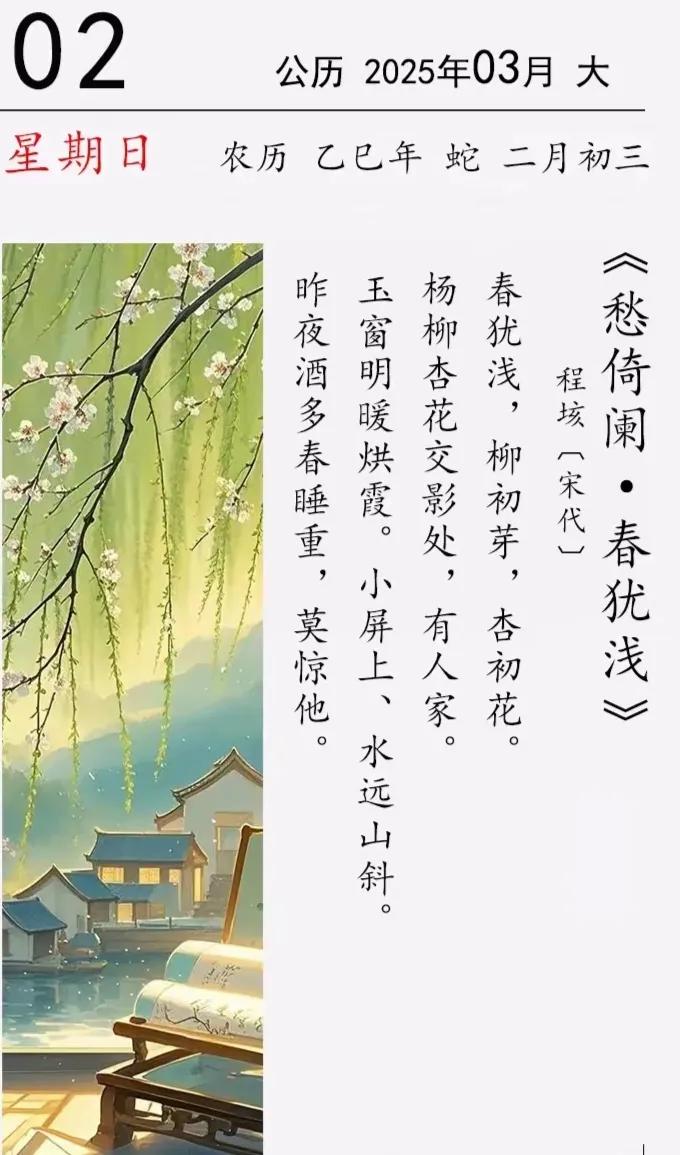 02
公历 2025年03月 大
星期日 农历 乙巳年 蛇 二月初三
《愁倚阑·春犹浅》
程垓〔宋代〕
春犹浅，柳初芽，杏初花。
杨柳杏花交影处，有人家。
玉窗明暖烘霞。小屏上、水远山斜。
昨夜酒多春睡重，莫惊他。